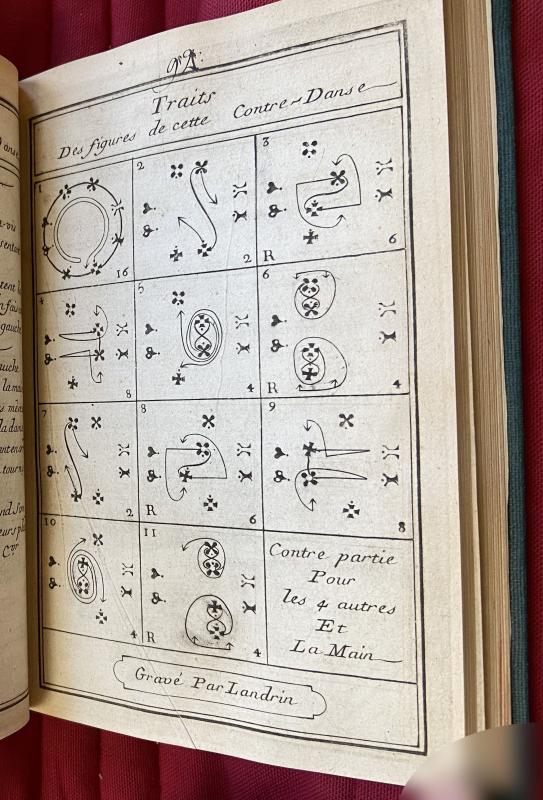 Traits
Des figures de cette Contre-Danse
1
16
2
2
3
R
6
4
8
5
4
6
R
4
7
2
8
R
6
9
8
10
4
11
R
4
Contre partie
Pour
les 4 autres
Et
La Main
Gravé Par Landrin